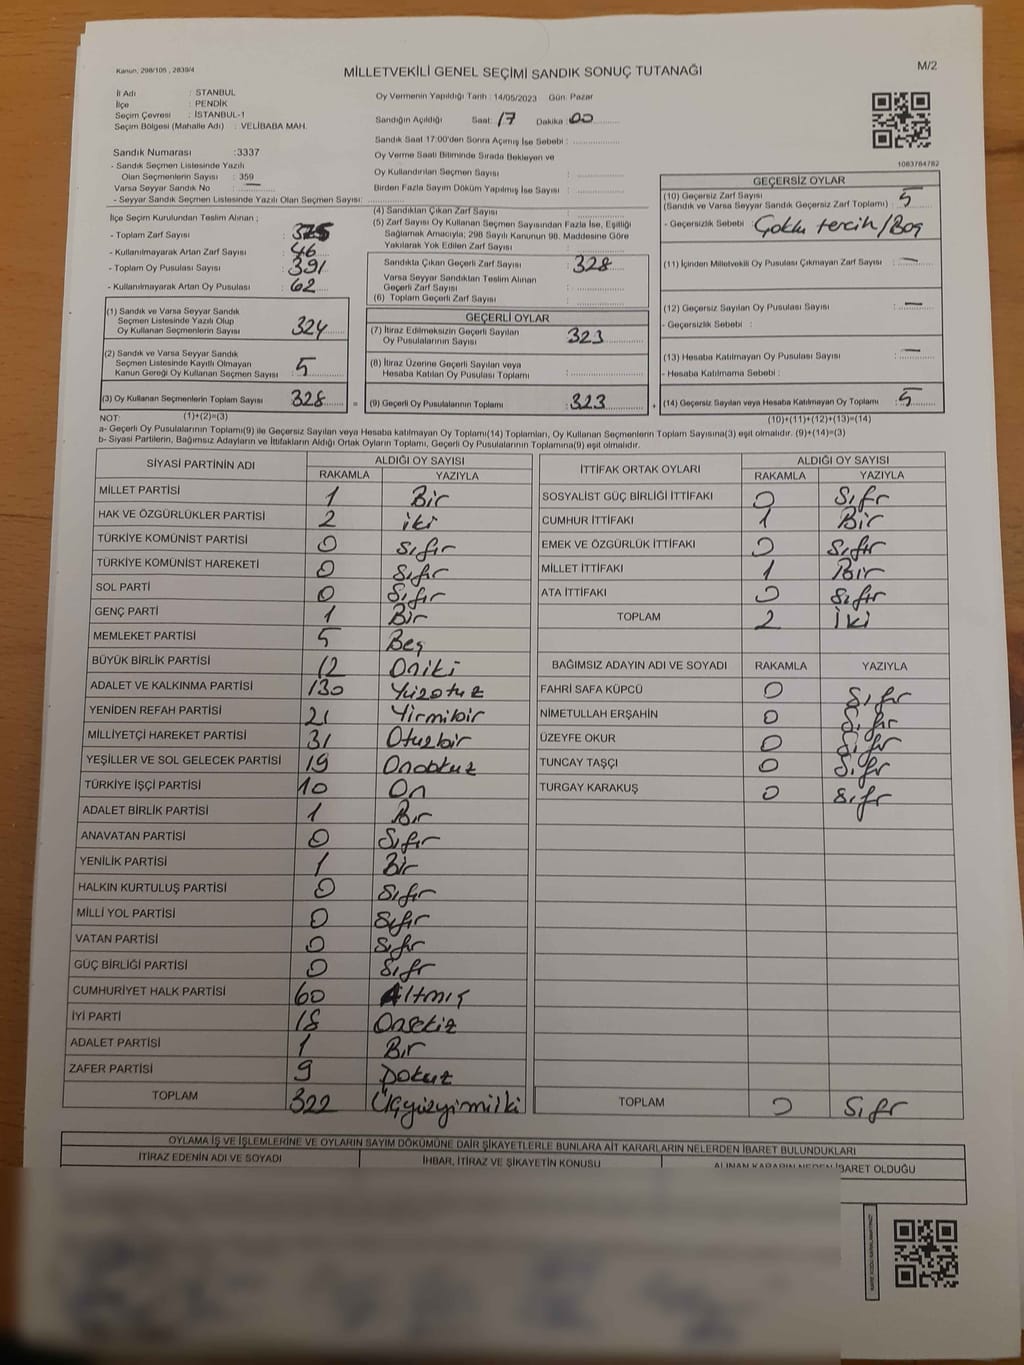 Kanun, 298/105 , 2839/4
MİLLETVEKİLİ GENEL SEÇİMİ SANDIK SONUÇ TUTANAĞI
M/2
İl Adı : STANBUL
İlçe : PENDİK
Seçim Çevresi : İSTANBUL-1
Seçim Bölgesi (Mahalle Adı) : VELİBABA MAH.
Oy Vermenin Yapıldığı Tarih : 14/05/2023 Gün: Pazar
Sandığın Açıldığı Saat: 17 Dakika : 00
Sandık Saat 17:00'den Sonra Açılmış İse Sebebi :
Oy Verme Saati Bitiminde Sırada Bekleyen ve
Oy Kullandırılan Seçmen Sayısı :
Birden Fazla Sayım Döküm Yapılmış İse Sayısı :
1083784782
Sandık Numarası :3337
- Sandık Seçmen Listesinde Yazılı
Olan Seçmenlerin Sayısı : 359
Varsa Seyyar Sandık No : —
- Seyyar Sandık Seçmen Listesinde Yazılı Olan Seçmen Sayısı:
İlçe Seçim Kurulundan Teslim Alınan ;
- Toplam Zarf Sayısı : 375
- Kullanılmayarak Artan Zarf Sayısı : 46
- Toplam Oy Pusulası Sayısı : 391
- Kullanılmayarak Artan Oy Pusulası : 62
(1) Sandık ve Varsa Seyyar Sandık
Seçmen Listesinde Yazılı Olup
Oy Kullanan Seçmenlerin Sayısı : 324
(2) Sandık ve Varsa Seyyar Sandık
Seçmen Listesinde Kayıtlı Olmayan
Kanun Gereği Oy Kullanan Seçmen Sayısı : 5
(3) Oy Kullanan Seçmenlerin Toplam Sayısı : 328
(1)+(2)=(3)
(4) Sandıktan Çıkan Zarf Sayısı :
(5) Zarf Sayısı Oy Kullanan Seçmen Sayısından Fazla İse, Eşitliği
Sağlamak Amacıyla; 298 Sayılı Kanunun 98. Maddesine Göre
Yakılarak Yok Edilen Zarf Sayısı :
Sandıkta Çıkan Geçerli Zarf Sayısı : 328
Varsa Seyyar Sandıktan Teslim Alınan
Geçerli Zarf Sayısı :
(6) Toplam Geçerli Zarf Sayısı :
GEÇERLİ OYLAR
(7) İtiraz Edilmeksizin Geçerli Sayılan
Oy Pusulalarının Sayısı : 323
(8) İtiraz Üzerine Geçerli Sayılan veya
Hesaba Katılan Oy Pusulası Toplamı :
= (9) Geçerli Oy Pusulalarının Toplamı : 323 +
GEÇERSİZ OYLAR
(10) Geçersiz Zarf Sayısı
(Sandık ve Varsa Seyyar Sandık Geçersiz Zarf Toplamı) : 5
- Geçersizlik Sebebi : Çoklu tercih/Boş
(11) İçinden Milletvekili Oy Pusulası Çıkmayan Zarf Sayısı : —
(12) Geçersiz Sayılan Oy Pusulası Sayısı : —
- Geçersizlik Sebebi :
(13) Hesaba Katılmayan Oy Pusulası Sayısı : —
- Hesaba Katılmama Sebebi :
(14) Geçersiz Sayılan veya Hesaba Katılmayan Oy Toplamı : 5
(10)+(11)+(12)+(13)=(14)
NOT:
a- Geçerli Oy Pusulalarının Toplamı(9) ile Geçersiz Sayılan veya Hesaba Katılmayan Oy Toplamı(14) Toplamları, Oy Kullanan Seçmenlerin Toplam Sayısına(3) eşit olmalıdır. (9)+(14)=(3)
b- Siyasi Partilerin, Bağımsız Adayların ve İttifakların Aldığı Ortak Oyların Toplamı, Geçerli Oy Pusulalarının Toplamına(9) eşit olmalıdır.
SİYASİ PARTİNİN ADI ALDIĞI OY SAYISI
RAKAMLA YAZIYLA
MİLLET PARTİSİ 1 Bir
HAK VE ÖZGÜRLÜKLER PARTİSİ 2 iki
TÜRKİYE KOMÜNİST PARTİSİ 0 Sıfır
TÜRKİYE KOMÜNİST HAREKETİ 0 Sıfır
SOL PARTİ 0 Sıfır
GENÇ PARTİ 1 Bir
MEMLEKET PARTİSİ 5 Beş
BÜYÜK BİRLİK PARTİSİ 12 Oniki
ADALET VE KALKINMA PARTİSİ 130 Yüzotuz
YENİDEN REFAH PARTİSİ 21 Yirmibir
MİLLİYETÇİ HAREKET PARTİSİ 31 Otuzbir
YEŞİLLER VE SOL GELECEK PARTİSİ 19 Ondokuz
TÜRKİYE İŞÇİ PARTİSİ 10 On
ADALET BİRLİK PARTİSİ 1 Bir
ANAVATAN PARTİSİ 0 Sıfır
YENİLİK PARTİSİ 1 Bir
HALKIN KURTULUŞ PARTİSİ 0 Sıfır
MİLLİ YOL PARTİSİ 0 Sıfır
VATAN PARTİSİ 0 Sıfır
GÜÇ BİRLİĞİ PARTİSİ 0 Sıfr
CUMHURİYET HALK PARTİSİ 60 Altmış
İYİ PARTİ 18 Onsekiz
ADALET PARTİSİ 1 Bır
ZAFER PARTİSİ 9 Dokuz
TOPLAM 322 Üçyüzyirmiiki
İTTİFAK ORTAK OYLARI ALDIĞI OY SAYISI
RAKAMLA YAZIYLA
SOSYALİST GÜÇ BİRLİĞİ İTTİFAKI 0 Sıfr
CUMHUR İTTİFAKI 1 Bir
EMEK VE ÖZGÜRLÜK İTTİFAKI 0 Sıfır
MİLLET İTTİFAKI 1 Bir
ATA İTTİFAKI 0 Sıfır
TOPLAM 2 İki
BAĞIMSIZ ADAYIN ADI VE SOYADI RAKAMLA YAZIYLA
FAHRİ SAFA KÜPCÜ 0 Sıfır
NİMETULLAH ERŞAHİN 0 Sıfır
ÜZEYFE OKUR 0 Sıfır
TUNCAY TAŞÇI 0 Sıfır
TURGAY KARAKUŞ 0 Sıfr
TOPLAM 0 Sıfr
OYLAMA İŞ VE İŞLEMLERİNE VE OYLARIN SAYIM DÖKÜMÜNE DAİR ŞİKAYETLERLE BUNLARA AİT KARARLARIN NELERDEN İBARET BULUNDUKLARI
İTİRAZ EDENİN ADI VE SOYADI İHBAR, İTİRAZ VE ŞİKAYETİN KONUSU ALINAN KARARIN NEDEN İBARET OLDUĞU